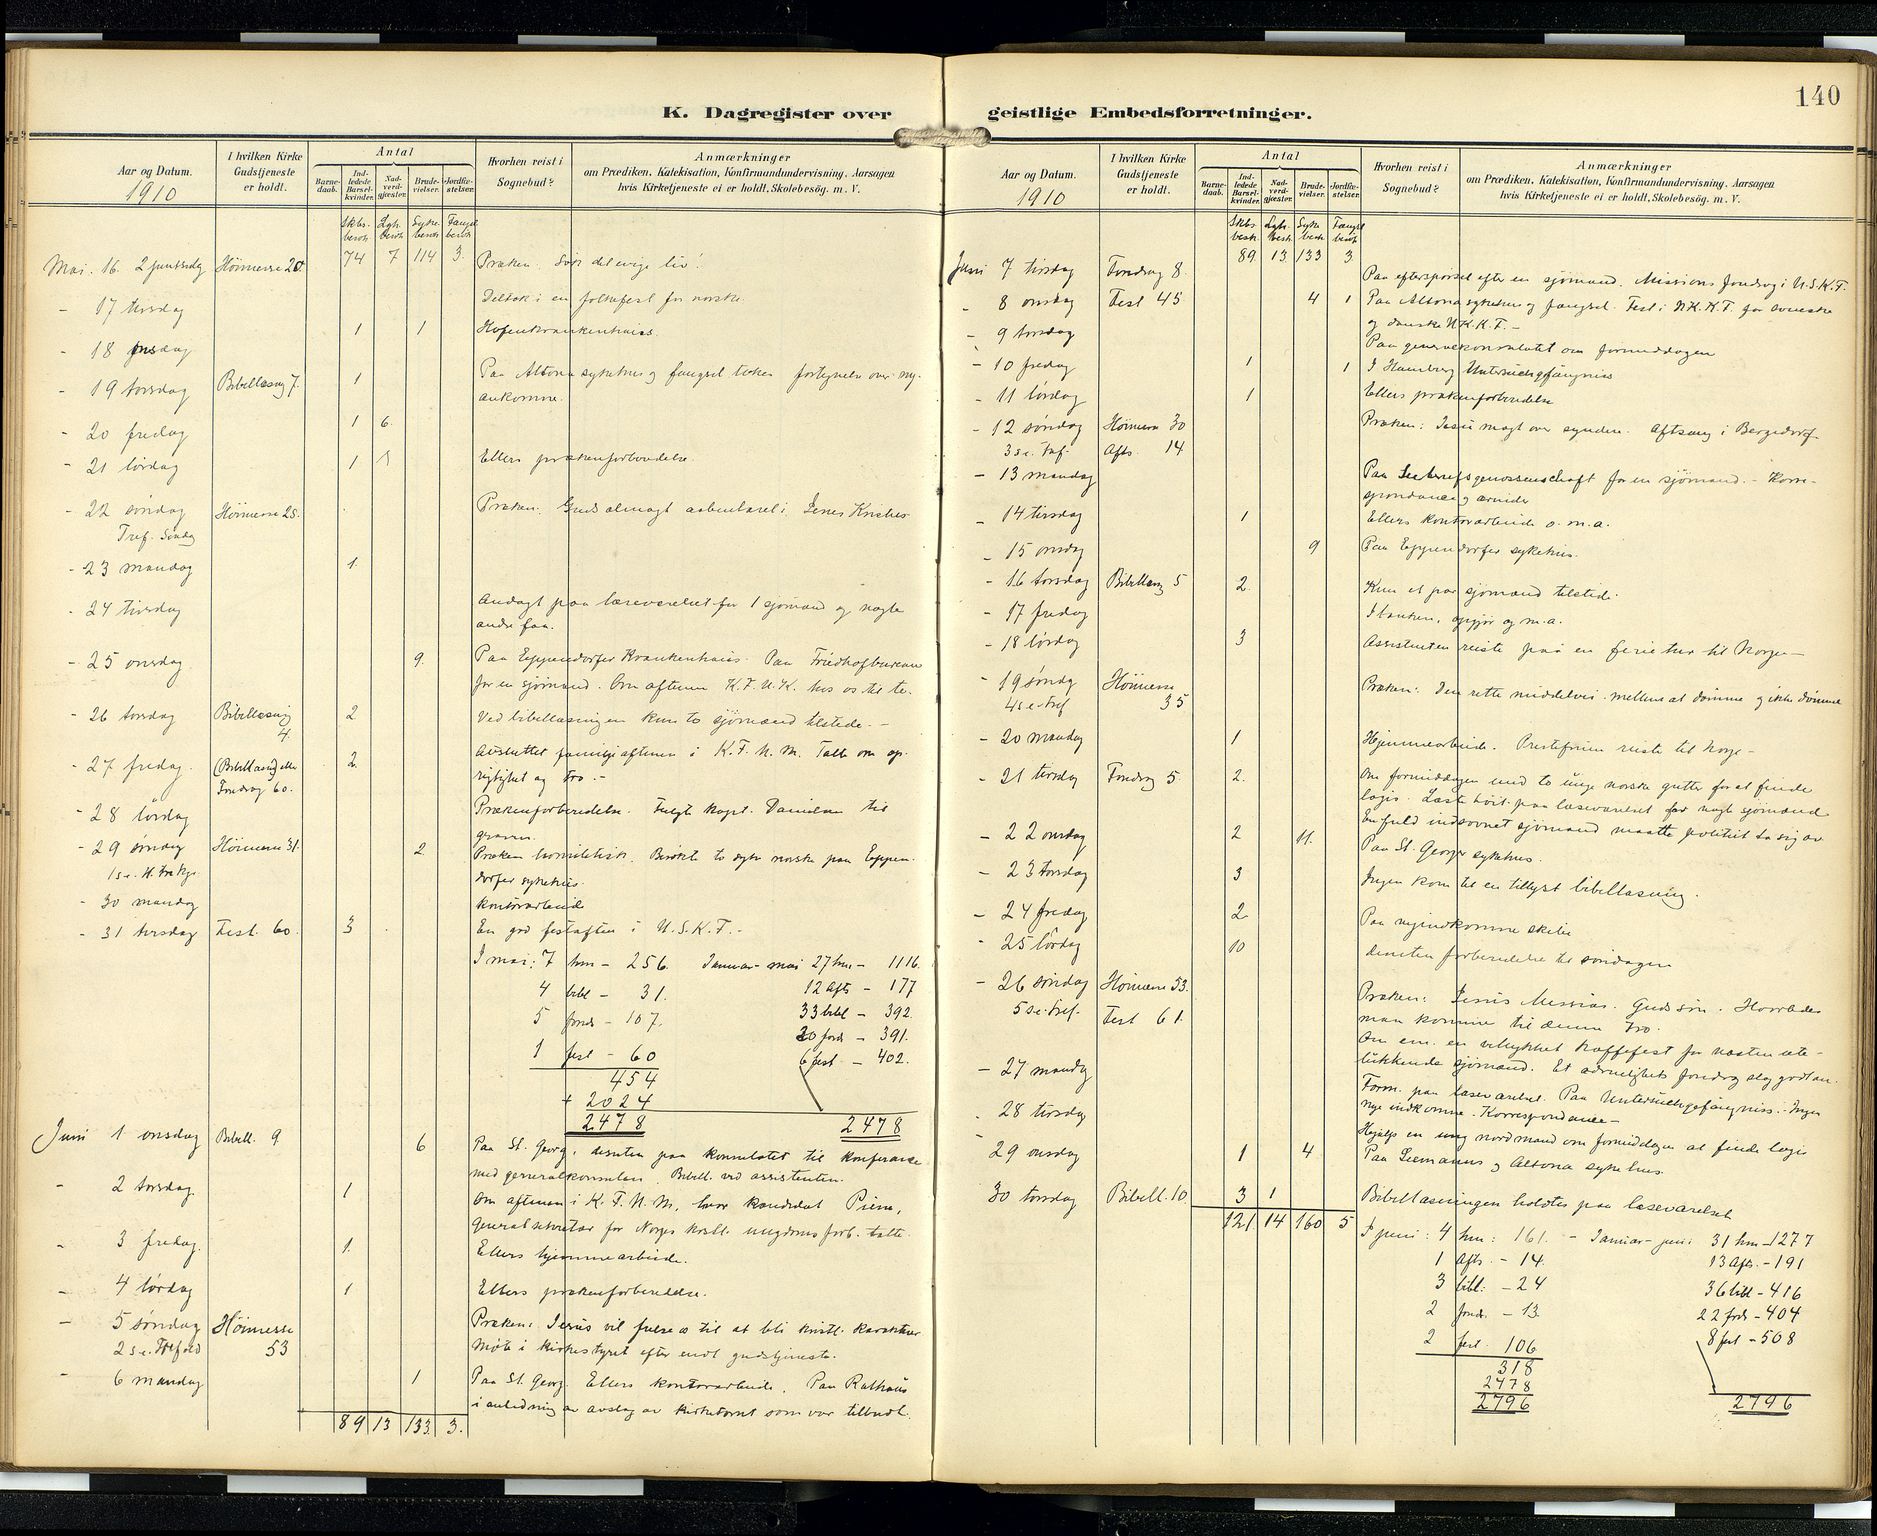 K. Dagregister over geistlige Embedsforretninger.
140
Aar og Datum.
1910
I hvilken Kirke
Gudstjeneste
er holdt.
Antal
Barne-
daab.
Ind-
ledede
Barsel-
kvinder.
Nad-
verd-
gjæster.
Brude-
vielser.
Jordfæ-
stelser.
Hvorhen reist i
Sognebud?
Anmærkninger
om Prædiken, Katekisation, Konfirmandundervisning, Aarsagen
hvis Kirketjeneste ei er holdt. Skolebesøg. m. V.
Skbs. besøk Lgh. besøk Syke. besøk Fængsl besøk
Mai. 16. 2 pintsedag Høimesse 20. 74 7 114 3. Præken. Søk det evige liv!
- 17 tirsdag Deltok i en folkefest for norske.
- 18 onsdag 1 1 Hafenkrankenhaus.
- 19 torsdag Bibellæsning 7. 1 Paa Altona sykehus og fængsel fortegnelse over ny-
ankomne.
- 20 fredag 1 6.
- 21 lørdag 1 Ellers prækenforberedelse.
- 22 søndag Høimesse 25. Præken. Guds almagt aabenbaret i Jesus Kristus.
Tref. Søndag
- 23 mandag 1.
- 24 tirsdag Andagt paa læseværelset for 1 sjømand og nogle
andre faa.
- 25 onsdag 9. Paa Eppendorfer Krankenhaus. Paa Friedhofbureau
for en sjømand. Om aftenen K.F.U.K. hos os til te.
- 26 torsdag Bibellæsning 4. 2 Ved bibellæsningen kun to sjømænd tilstede. -
- 27 fredag. (Bibellæsng) eller 2. Avsluttet familjeaftenen i K.F.U.M. Talte om op-
Foredrag 60. rigtighet og tro. -
- 28 lørdag Prækenforberedelse. Fulgte kapt. Danielsen til
graven.
- 29 søndag Høimesse 31. 2. Præken homiletisk. Besøkte to syke norske paa Eppen-
1 s. e. H. trekg. dorfer sykehus.
- 30 mandag kontorarbeide
- 31 tirsdag Fest. 60. 3 En god festaften i U.S.K.F. -
I mai: 7 hm - 256. Januar - mai 27 hm - 1116.
4 bibl - 31. 12 Afts - 177
5 fords - 107. 33 bibl - 392.
1 fest - 60 20 fords - 391.
454 6 fest. - 402.
+ 2024
2478 2478
Juni 1 onsdag Bibell. 9 6 Paa St. Georg, desuten paa konsulatet til konferanse
med generalkonsulen. Bibell. ved assistenten.
- 2 torsdag. 1 Om aftenen i K.F.U.M., hvor kandidat Piene,
Generalsekretær for Norges kristl. ungdomsforb. talte.
- 3 fredag. 1. Ellers hjemmearbeide.
- 4 lørdag 1 Ellers prækenforberedelse.
- 5 søndag Høimesse Præken: Jesus vil frelse os til at bli kristl. karakterer
2 s. e. Trefold 53 Møte i kirkestyret efter endt gudstjeneste.
- 6 mandag 1 Paa St. Georg. Ellers kontorarbeide. Paa Rathaus
i anledning av avslag av kirketomt som var tilbudt.
89 13 133. 3.
Aar og Datum.
1910
I hvilken Kirke
Gudstjeneste
er holdt.
Antal
Barne-
daab.
Ind-
ledede
Barsel-
kvinder.
Nad-
verd-
gjæster.
Brude-
vielser.
Jordfæ-
stelser.
Hvorhen reist i
Sognebud?
Anmærkninger
om Prædiken, Katekisation, Konfirmandundervisning, Aarsagen
hvis Kirketjeneste ei er holdt. Skolebesøg. m. V.
Skbs. besk. Lgh. besk. Syke besk. Fængsl besk
Juni 7 tirsdag Foredrag 8. 89. 13. 133 3 Paa efterspørsel efter en sjømand. Missions foredrag i U.S.K.F.
- 8 onsdag Fest 45 4 1 Paa Altona sykehus og fængsel. Fest i U.K.K.F. for svenske
og danske U.K.K.F. -
- 9 torsdag Paa generalkonsulatet om formiddagen
- 10 fredag 1 1 I Hamburg Untersuchgsfängniss
- 11 lørdag 1 Ellers prækenforberedelse
- 12 søndag Høimesse 30 Præken: Jesu magt over synden. Aftsang i Bergedorf
3 s. e. Tref. Afts. 14
- 13 mandag Paa Seeberufsgenossenschaft for en sjømand. - Korre-
spondance og ærinder
- 14 tirsdag 1 Ellers kontorarbeide o. m. a.
- 15 onsdag 9 Paa Eppendorfer sykehus.
- 16 torsdag Bibellæsng 5 2. Kun et par sjømænd tilstede.
- 17 fredag I banken, opgjør og m. a.
- 18 lørdag 3 Assistenten reiste paa en ferietur til Norge -
- 19 søndag Høimesse Præken: Den rette middelvei mellem at dømme og ikke dømme
4 s. e. tref 35
- 20 mandag 1 Hjemmearbeide. Prestefruen reiste til Norge -
- 21 tirsdag Foredrag 5. 2. Om formiddagen med to unge norske gutter for at finde
logis. Læste høit paa læseværelset for nogle sjømænd
En fuld indsovnet sjømand maatte politiet ta sig av
- 22 onsdag 2 11. Paa St. Georgs sykehus.
- 23 torsdag 3 Ingen kom til en tillyst bibellæsning.
- 24 fredag 2 Paa nyindkomne skibe
- 25 lørdag 10 desuten forberedelse til søndagen
- 26 søndag Høimesse 53. Præken: Jesus Messias. Guds søn. Hvorledes
5 s. e. tref. Fest 61. man kommer til denne tro.
Om em. en vellykket kaffefest for næsten ute-
lukkende sjømænd. Et foredrag slog godt an.
- 27 mandag Form. paa læseværelset. Paa Untersuchgsfängniss. Ingen
nye indkomne. Korrespondance -
- 28 tirsdag Hjalp en ung nordmand om formiddagen at finde logis
- 29 onsdag 1 4 Paa Seemanns og Altona sykehus.
30 torsdag Bibell. 10. 3 1 Bibellæsningen holdtes paa læseværelset
121 14 160 5 I juni: 4 hm: 161. - Januar - juni 31 hm - 1277
1 Afts. - 14. 13 Afts. - 191
3 bibl: - 24 36 bibl - 416
2 fords. - 13. 22 fords - 404
2 fest. 106 8 fest - 508
318
2478
2796 2796